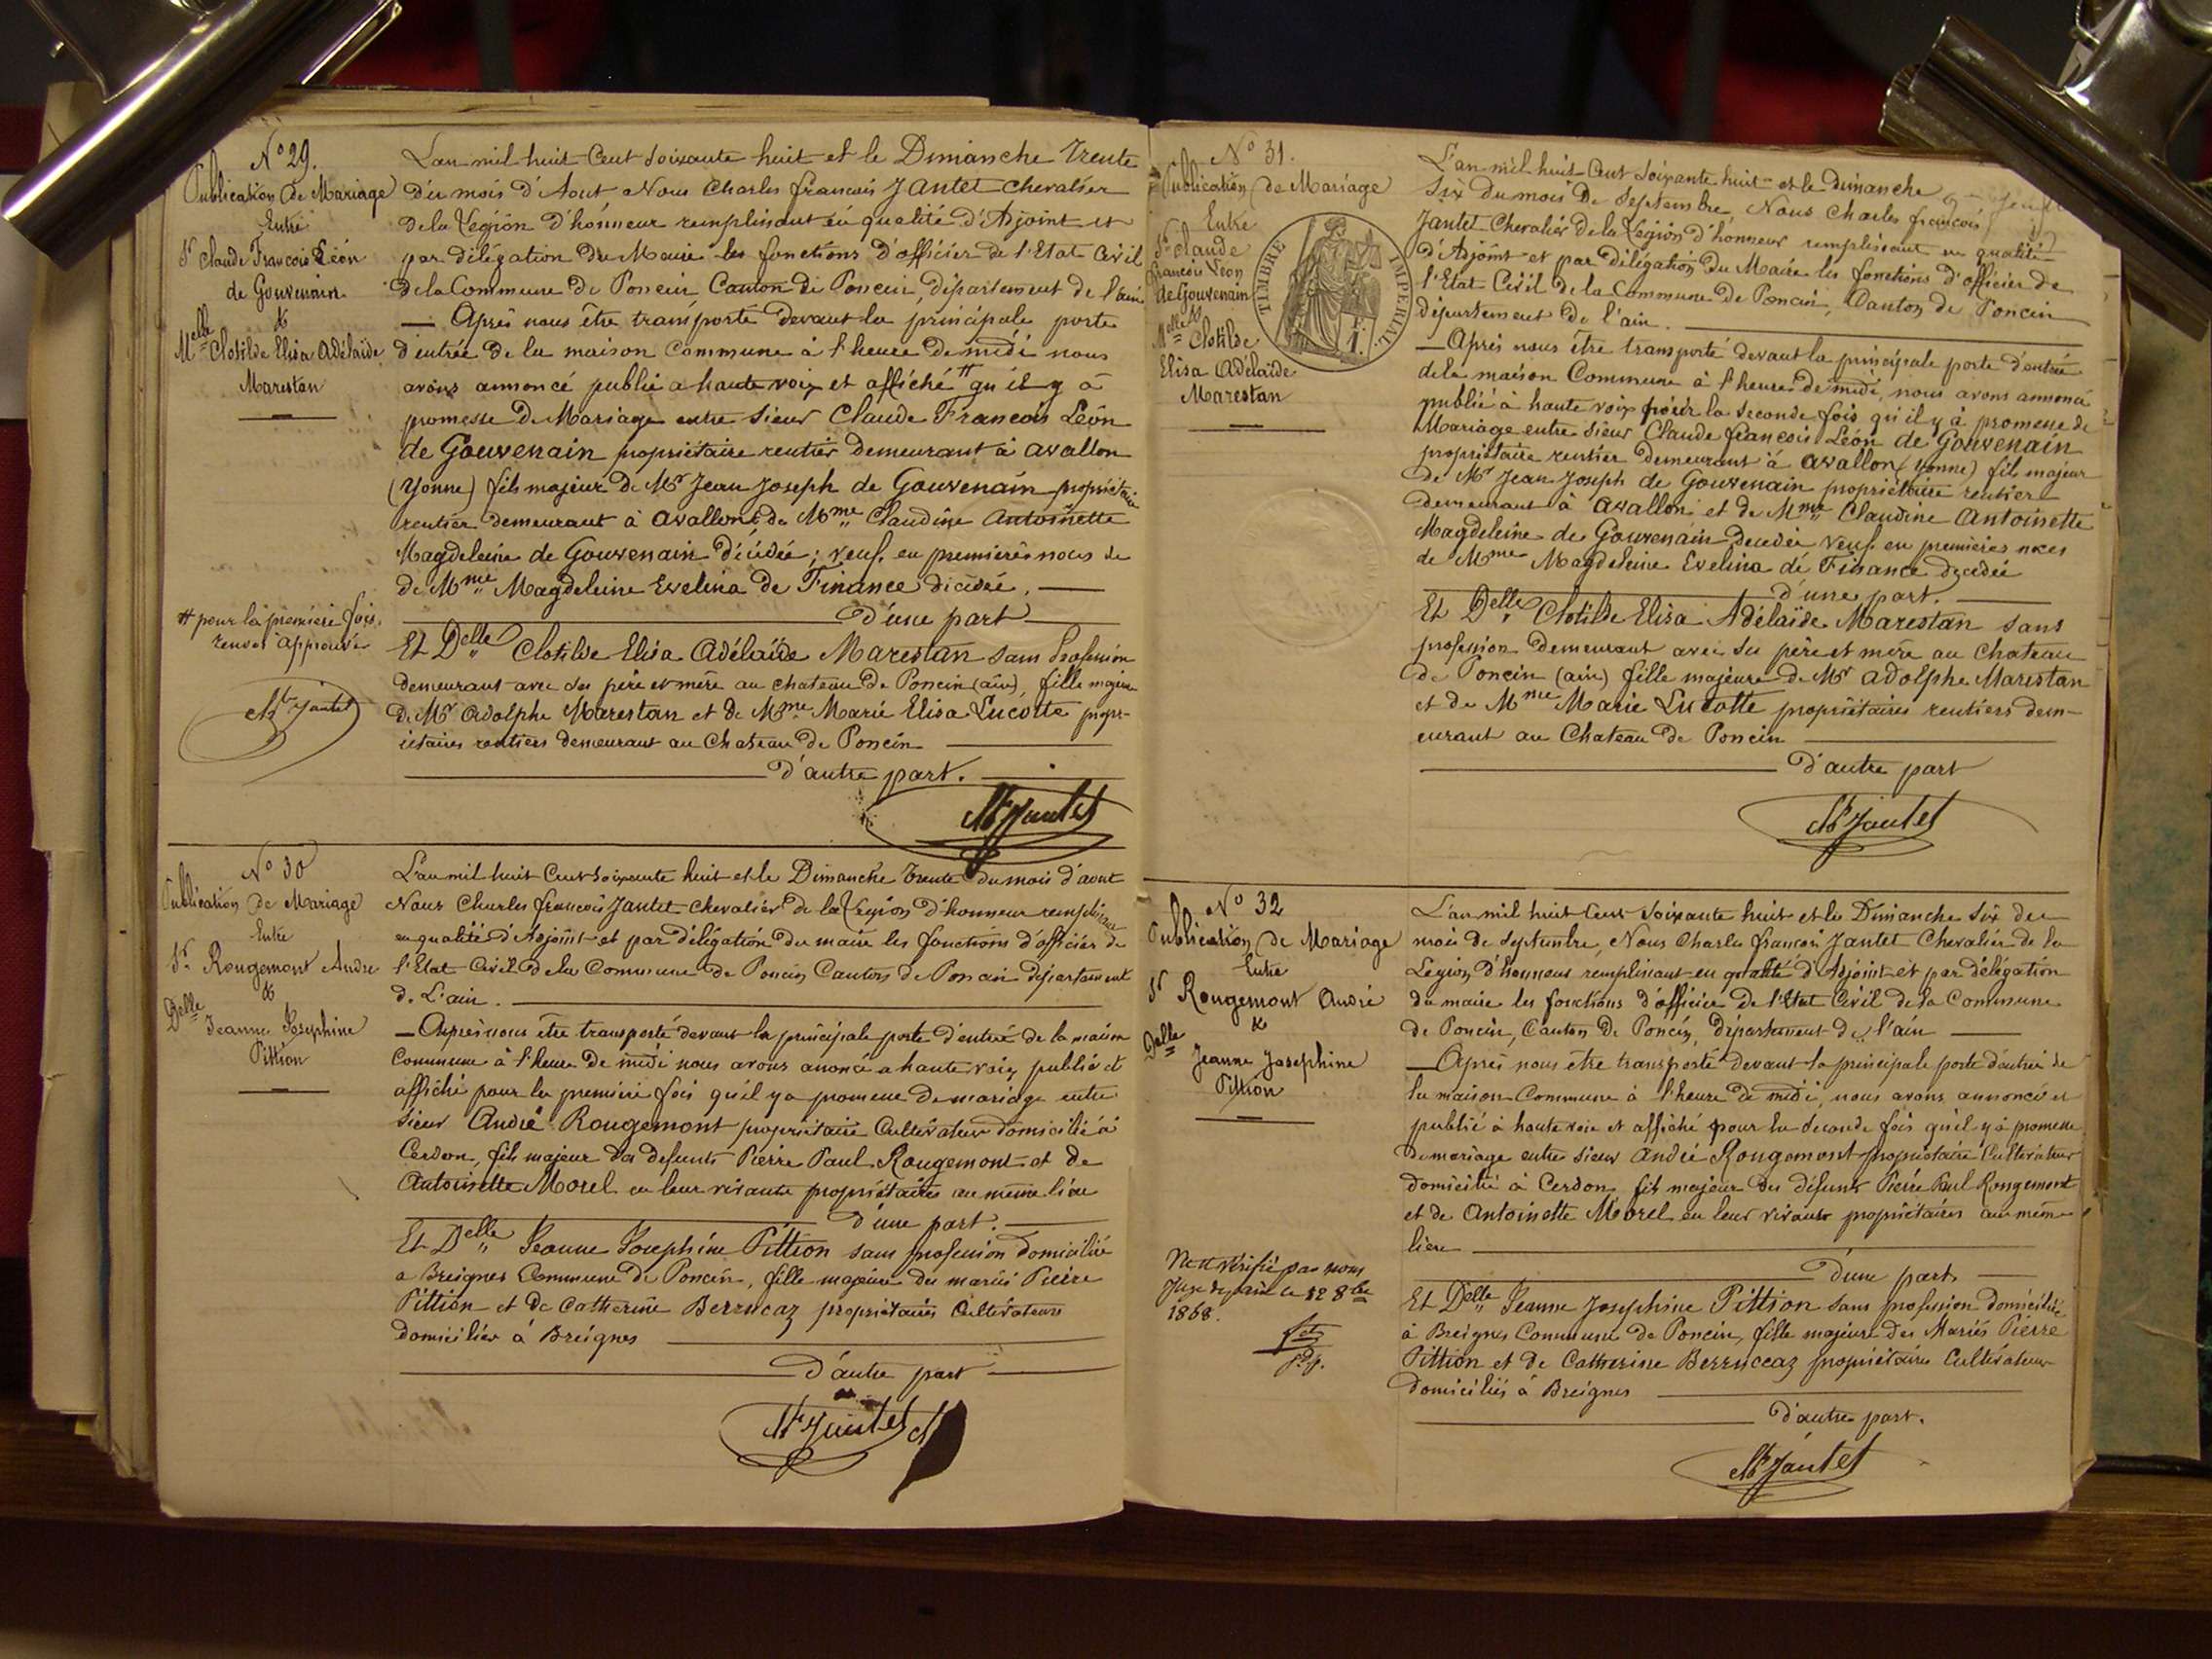 N° 29.
Publication de Mariage
Entre
Sr Claude François Léon
de Gouvenain
&
Melle Clotilde Elisa Adélaïde
Marestan
L'an mil huit Cent soixante huit et le Dimanche Trente
du mois d'Aout Nous Charles françois Jantet chevalier
de la Légion d'honneur remplissant en qualité d'Adjoint et
par délégation du Maire les fonctions d'officier de l'Etat Civil
de la Commune de Poncin Canton de Poncin, département de l'ain
— Après nous être transporté devant la principale porte
d'entrée de la maison Commune à l'heure de midi nous
avons annoncé publié a haute voix et affiché # qu'il y à
promesse de Mariage entre sieur Claude François Léon
de Gouvenain propriétaire rentier demeurant à avallon
(Yonne) fils majeur de Mr Jean Joseph de Gouvenain propriétaire
rentier demeurant à avallon & de Mme Claudine Antoinette
Magdeleine de Gouvenain décédée; veuf en premières noces de
de Mme Magdeleine Evelina de Finance décédée.
d'une part
# pour la première fois,
renvoi approuvé
Ch Jantet
Et Delle Clotilde Elisa Adélaïde Marestan sans profession
demeurant avec ses père et mère au chateau de Poncin (ain) fille majeure
de Mr Adolphe Marestan et de Mme Marie Elisa Lucotte propr-
iétaires rentiers demeurant au Chateau de Poncin
d'autre part.
Ch Jantet
N° 30
Publication de Mariage
Entre
Sr Rougemont Andre
&
Delle Jeanne Josephine
Pittion
L'an mil huit Cent soixante huit et le Dimanche trente du mois d'aout
Nous Charles françois Jantet chevalier de la Légion d'honneur remplissant
en qualité d'Adjoint et par délégation du maire les fonctions d'officier de
l'Etat Civil de la Commune de Poncin Canton de Poncin département
de L'ain.
— Après nous être transporté devant la principale porte d'entrée de la maison
Commune à l'heure de midi nous avons anoncé a haute voix publié et
affiché pour la première fois qu'il y a promesse de mariage entre
Sieur André Rougemont propriétaire Cultivateur domicilié à
Cerdon, fils majeur des defunts Pierre Paul Rougemont et de
Antoinette Morel en leur vivants propriétaires au même lieu
d'une part.
Et Delle Jeanne Josephine Pittion sans profession domiciliée
a Breignes Commune de Poncin, fille majeure des mariés Pierre
Pittion et de Catherine Berrucaz propriétaires Cultivateurs
domiciliés à Breignes
d'autre part
Ch Jantet
N° 31.
Publication de Mariage
Entre
Sr Claude
François Léon
de Gouvenain
&
Melle Clotilde
Elisa Adélaïde
Marestan
TIMBRE IMPERIAL
L'an mil huit Cent soixante huit et le dimanche
Six du mois de Septembre, Nous Charles françois
Jantet Chevalier de la Légion d'honneur remplissant en qualité
d'Adjoint et par délégation du Maire les fonctions d'officier de
l'Etat Civil de la Commune de Poncin, Canton de Poncin
département de l'ain.
— Après nous être transporté devant la principale porte d'entrée
de la maison Commune à l'heure de midi, nous avons annoncé
publié à haute voix pour la seconde fois qu'il y à promesse de
Mariage entre sieur Claude françois Léon de Gouvenain
propriétaire rentier demeurant à avallon (yonne) fils majeur
de Mr Jean Joseph de Gouvenain propriétaire rentier
demeurant à avallon et de Mme Claudine Antoinette
Magdeleine de Gouvenain decedée veuf en premières noces
de Mme Magdeleine Evelina de Finance decedée
d'une part.
Et Delle Clotilde Elisa Adélaïde Marestan sans
profession demeurant avec ses père et mère au chateau
de Poncin (ain) fille majeure de Mr Adolphe Marestan
et de Mme Marie Lucotte propriétaires rentiers dem-
eurant au Chateau de Poncin
d'autre part
Ch Jantet
N° 32
Publication de Mariage
Entre
Sr Rougemont André
&
Delle Jeanne Josephine
Pittion
L'an mil huit Cent soixante huit et le Dimanche Six du
mois de Septembre, Nous Charles françois Jantet Chevalier de la
Légion d'honneur remplissant en qualité d'Adjoint et par délégation
du maire les fonctions d'officier de l'Etat Civil de la Commune
de Poncin, Canton de Poncin, département de l'ain
— Après nous être transporté devant la principale porte d'entrée de
la maison Commune à l'heure de midi, nous avons annoncé et
publié à haute voix et affiché pour la seconde fois qu'il y à promesse
de mariage entre sieur André Rougemont propriétaire Cultivateur
domicilié à Cerdon, fils majeur des défunts Pierre Paul Rougemont
et de Antoinette Morel en leur vivant propriétaires au même
lieu
d'une part
Et Delle Jeanne Josephine Pittion sans profession domiciliée
à Breignes Commune de Poncin, fille majeure des Mariés Pierre
Pittion et de Catherine Berruccaz propriétaires Cultivateurs
domiciliés à Breignes
d'autre part.
Ch Jantet
Vu et vérifié par nous
Juge de paix ce 12 8bre
1868.